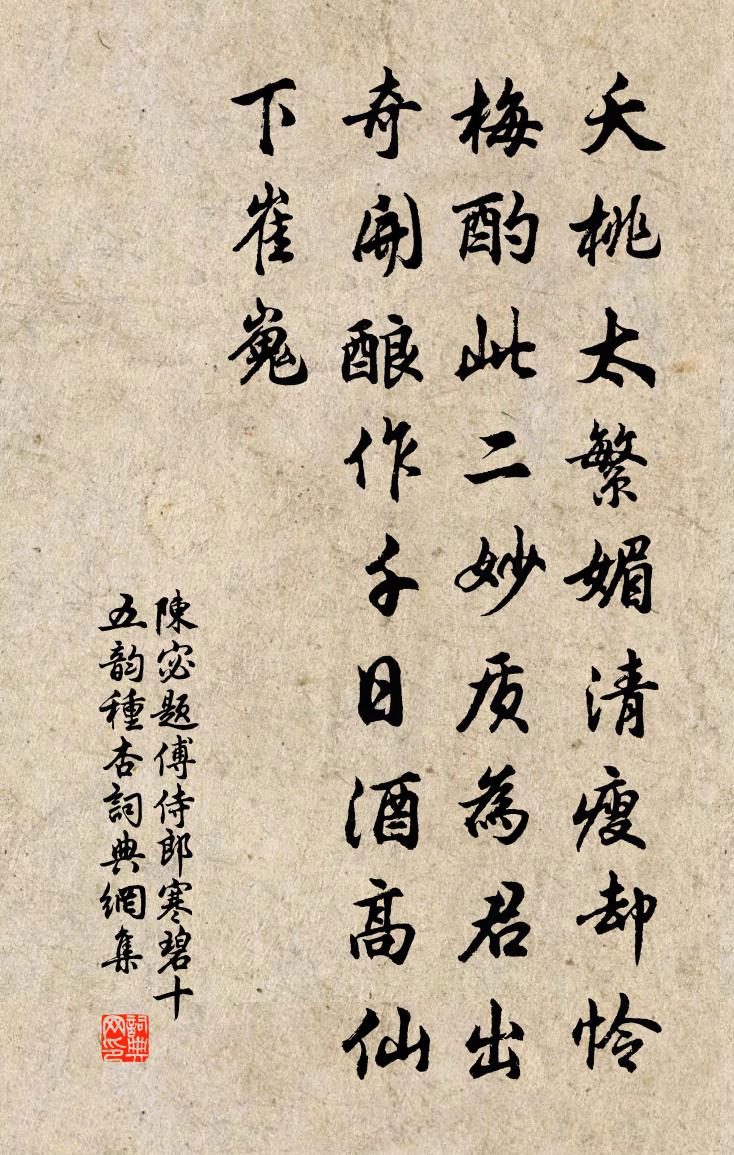 夭桃太繁媚清瘦却怜
梅酌此二妙质為君出
奇開酿作千日酒高仙
下崔嵬
陳宓题傅侍郎寒碧十
五韵種杏詞典網集
詞典
网印